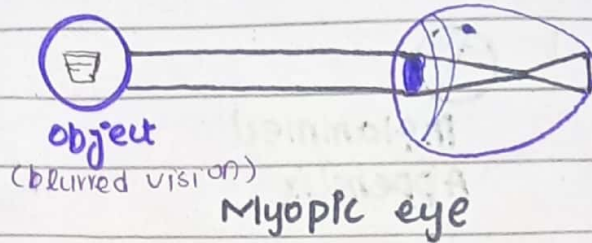 object
(blurred vision)
Myopic eye